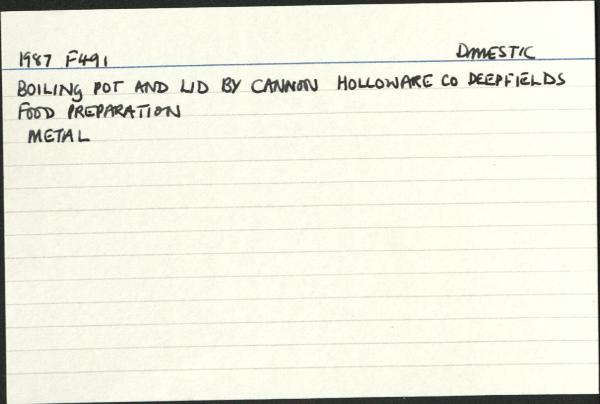 1987 F491 DOMESTIC
BOILING POT AND LID BY CANNON HOLLOWARE CO DEEPFIELDS
FOOD PREPARATION
METAL